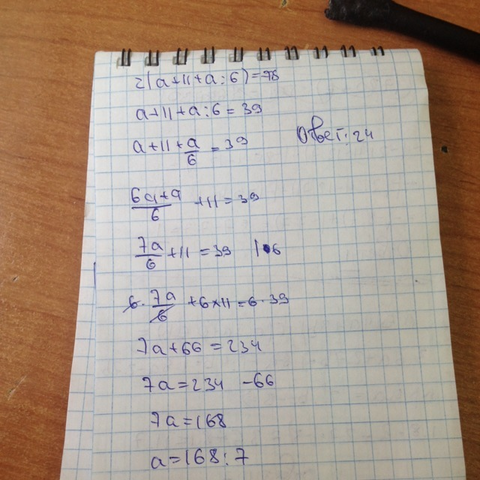 2(a+11+a:6)=78
a+11+a:6=39
a+11+a/6=39
Ответ:24
6a+a/6+11=39
7a/6+11=39 |•6
6·7a/6+6×11=6·39
7a+66=234
7a=234-66
7a=168
a=168:7